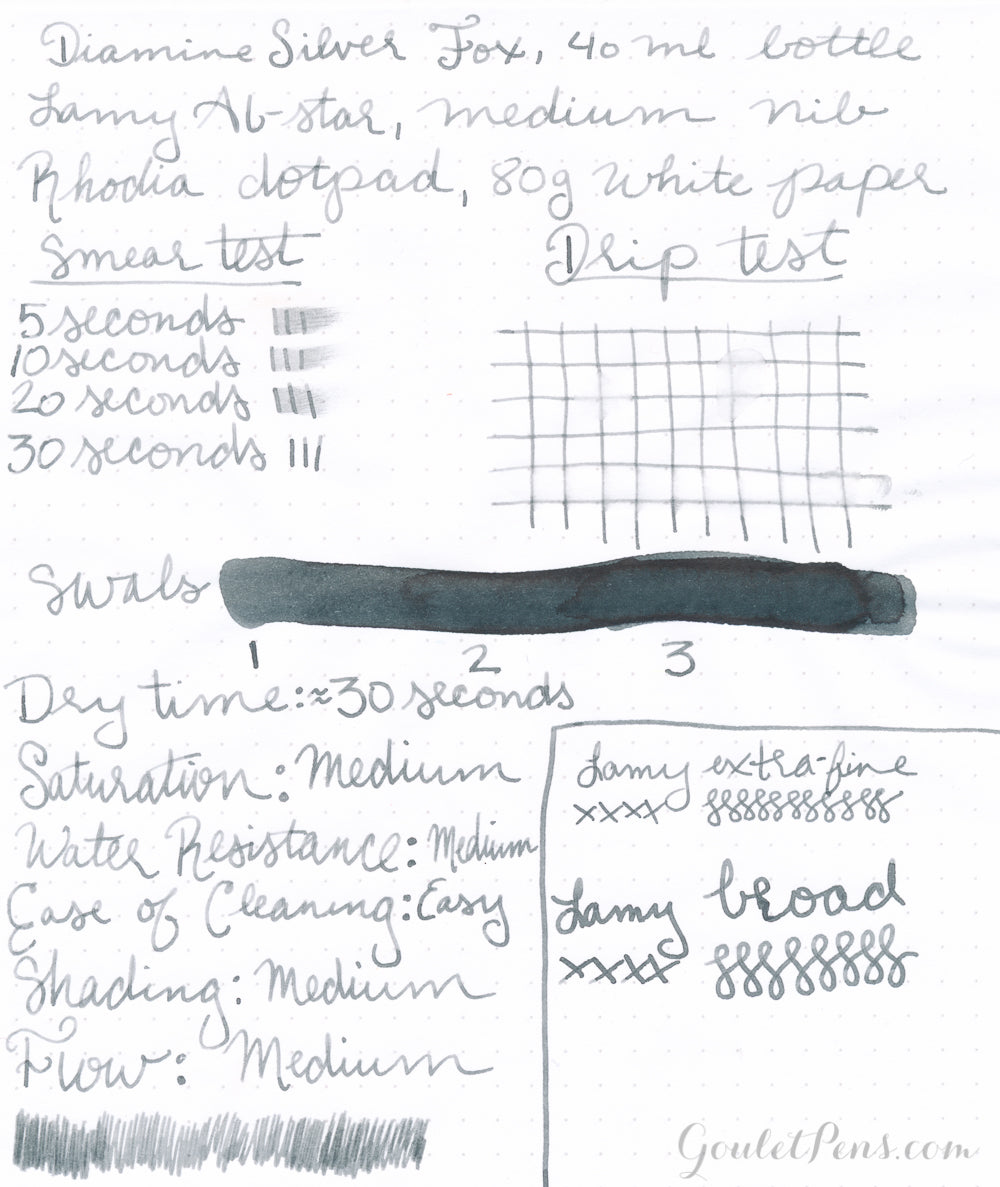 Diamine Silver Fox, 40 ml bottle
Lamy Al-star, medium nib
Rhodia dotpad, 80g white paper
Smear test
5 seconds
10 seconds
20 seconds
30 seconds
Drip test
Swabs
1 2 3
Dry time: ≈30 seconds
Saturation: Medium
Water Resistance: Medium
Ease of Cleaning: Easy
Shading: Medium
Flow: Medium
Lamy extra-fine
xxxx
Lamy broad
xxxx
GouletPens.com